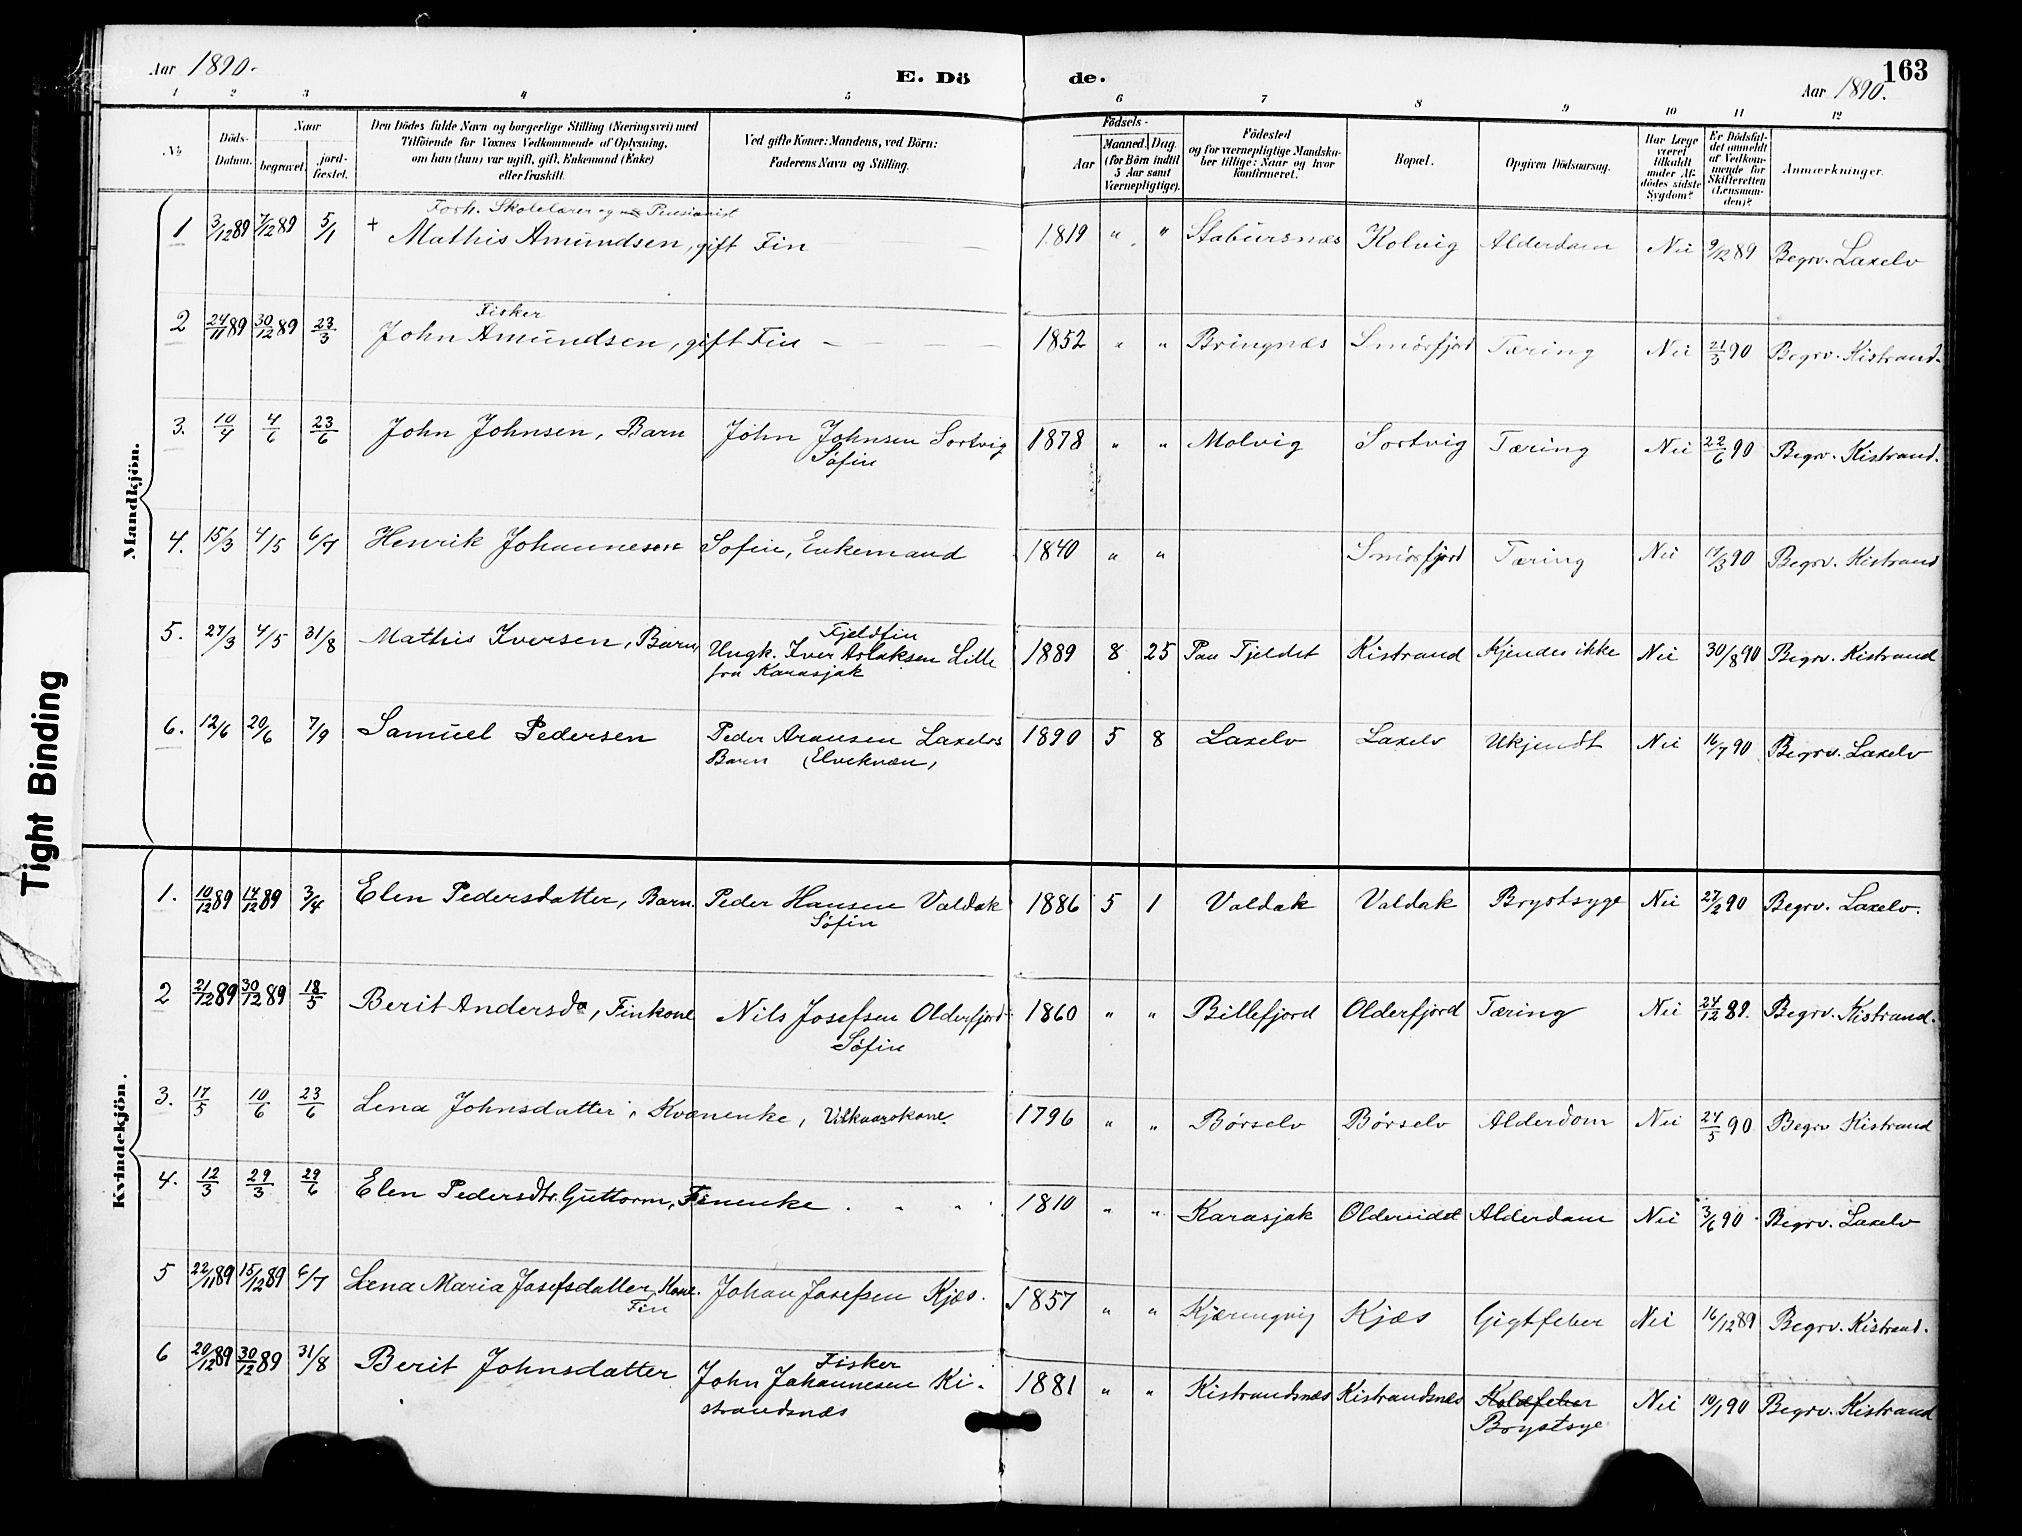 Aar 1890.
E. Dö
de.
163
Aar 1890.
1 2 3 4 5 6 7 8 9 10 11 12
No
Döds-
Datum.
Naar
begravet.
jord-
fæstet.
Den Dödes fulde Navn og borgerlige Stilling (Næringsvei) med
Tilföiende for Voxnes Vedkommende af Oplysning,
om han (hun) var ugift, gift, Enkemand (Enke)
eller fraskilt.
Ved gifte Koner: Mandens, ved Börn:
Faderens Navn og Stilling.
Födsels-
Aar
Maaned.
Dag.
(for Börn indtil
5 Aar samt
Værnepligtige).
Födested
og for værnepligtige Mandska-
ber tillige: Naar og hvor
konfirmeret.
Bopæl.
Opgiven Dödsaarsag.
Har Læge
været
tilkaldt
under Af-
dödes sidste
Sygdom?
Er Dödsfal-
det anmeldt
af Vedkom-
mende for
Skifteretten
(Lensman-
den)?
Anmærkninger.
Mandkjön.
Forh. Skolelærer og Pensionist
1 3/12 89 7/12 89 5/1 + Mathis Amundsen, gift Fin 1819 " " Stabursnæs Kolvig Alderdom Nei 9/12 89 Begrv. Laxelv
Fisker
2 24/11 89 30/12 89 23/3 John Amundsen, gift Fin 1852 " " Bringnæs Smörfjord Tæring Nei 21/3 90 Begrv. Kistrand.
3. 10/4 4/6 23/6 John Johnsen, Barn John Johnsen Sortvig 1878 " " Molvig Sortvig Tæring Nei 22/6 90 Begrv. Kistrand.
Söfin
4. 15/3 4/5 6/7 Henrik Johannesen Sofin, Enkemand 1840 " " Smörfjord Tæring Nei 17/3 90 Begrv. Kistrand
Fjeldfin
5. 27/3 4/5 31/8 Mathis Iversen, Barn Ungk. Iver Aslaksen Lille 1889 8 25 Paa Fjeldet Kistrand Kjendes ikke Nei 30/8 90 Begrv. Kistrand
fra Karasjok
6. 12/6 20/6 7/9 Samuel Pedersen Peder Aronsen Laxelv 1890 5 8 Laxelv Laxelv Ukjendt Nei 16/7 90 Begrv. Laxelv
Barn (Elvekvæn,
Kvindekjön.
1. 10/12 89 14/12 89 3/4 Elen Pedersdatter, Barn. Peder Hansen Valdak 1886 5 1 Valdak Valdak Brystsyge Nei 27/2 90 Begrv. Laxelv.
Söfin
2 21/12 89 30/12 89 18/5 Berit Andersda, Finkone Nils Josefsen Olderfjord 1860 " " Billefjord Olderfjord Tæring Nei 24/12 89. Begrv. Kistrand.
Söfin
3. 17/5 10/6 23/6 Lena Johnsdatter, Kvænenke, Vilkaarskone. 1796 " " Börselv Börselv Alderdom Nei 24/5 90 Begrv Kistrand
4. 12/3 29/3 29/6 Elen Pedersdtr. Guttorm, Finenke 1810 " " Karasjok Oldereidet Alderdom Nei 3/6 90 Begrv. Laxelv
5 22/11 89 15/12 89 6/7 Lena Maria Josefsdatter, Kone. Johan Josefsen Kjæs. 1857 " " Kjæringvig Kjæs Gigtfeber Nei 16/12 89 Begrv. Kistrand.
Fin
Fisker
6 20/12 89 30/12 89 31/8 Berit Johnsdatter John Johannesen Ki- 1881 " " Kistrandsnæs Kistrandsnæs Koldfeber Nei 10/1 90 Begrv. Kistrand
strandsnæs Brystsyge
Tight Binding